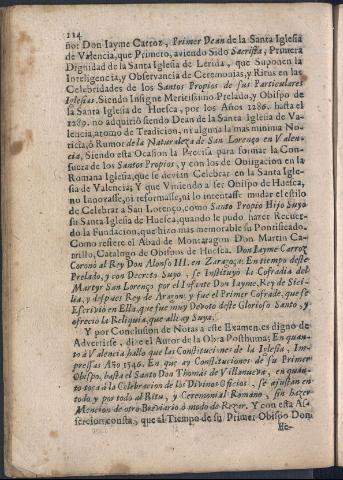 114
ñor Don Iayme Carroz, Primer Dean de la Santa Iglesia
de Valencia, que Primero, aviendo Sido Sacrista, Primera
Dignidad de la Santa Iglesia de Lerida, que Suponen la
Inteligencia, y Observancia de Ceremonias, y Ritus en las
Celebridades de los Santos Propios de sus Particulares
Iglesias. Siendo Insigne Meritissimo Prelado, y Obispo de
la Santa Iglesia de Huesca, por los Años 1286. hasta el
1289. no adquirió siendo Dean de la Santa Iglesia de Va-
lencia, atomo de Tradicion, ni alguna la mas minima No-
ticia, ò Rumor de la Naturaleza de San Lorenço en Valen-
cia, Siendo esta Ocasion la Precisa para formar la Con-
sueta de los Santos Propios, y con los de Obligacion en la
Romana Iglesia, que se devian Celebrar en la Santa Igle-
sia de Valencia; Y que Viniendo a ser Obispo de Huesca,
no Innovasse, ni reformasse, ni lo intentasse mudar el estilo
de Celebrar a San Lorenço, como Santo Propio Hijo Suyo
su Santa Iglesia de Huesca, quando le pudo hazer Recuer-
do la Fundacion, que hizo mas memorable su Pontificado.
Como refiere el Abad de Montaragon Don Martin Ca-
rrillo, Catalogo de Obispos de Huesca. Don Iayme Carroz
Coronó al Rey Don Alonso III. en Zaragoza: En tiempo deste
Prelado, y con Decreto Suyo, se Instituyò la Cofradia del
Martyr San Lorenço por el Infante Don Iayme, Rey de Sici-
lia, y despues Rey de Aragon: y fue el Primer Cofrade, que se
Escriviò en Ella, que fue muy Devoto deste Glorioso Santo, y
ofreciò la Reliquia, que alli ay Suya.
Y por Conclusion de Notas a este Examen, es digno de
Advertirse, dize el Autor de la Obra Posthuma; En quan-
to à Valencia hallo que las Constituciones de la Iglesia, Im-
pressas Año 1546. En que ay Constituciones de su Primer
Obispo, hasta el Santo Don Thomàs de Villanueva, en quan-
to toca à la Celebracion de los Divinos Oficios, se ajustan en
todo, y por todo al Ritu, y Ceremonial Romano, sin hazer
Mencion de otro Breviario ò modo de Rezar. Y con esta As-
sercion consta, que al Tiempo de su Primer Obispo Don
He-